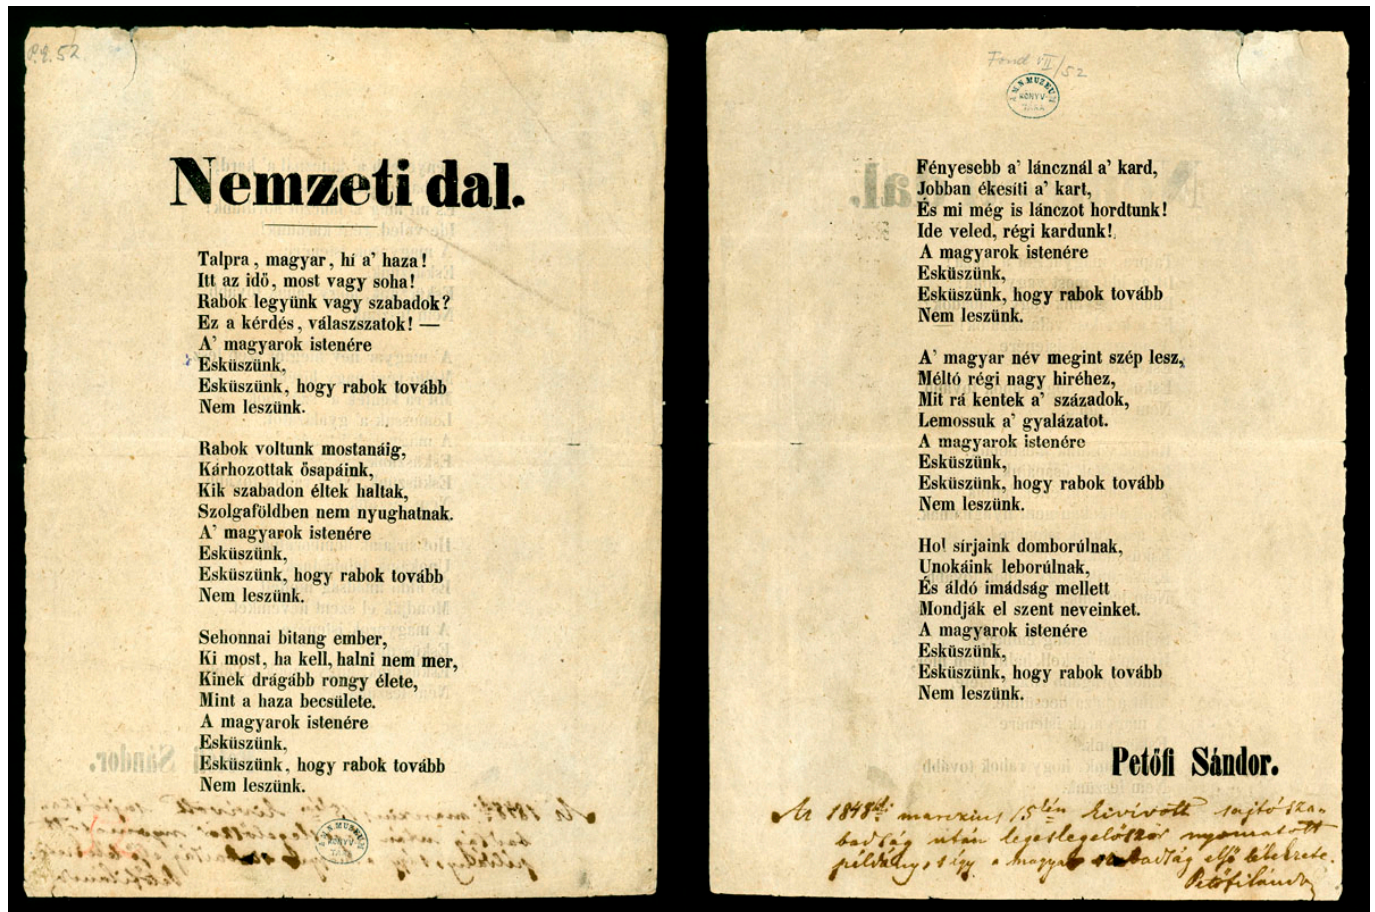 P.g. 52
Nemzeti dal.
Talpra, magyar, hí a' haza!
Itt az idő, most vagy soha!
Rabok legyünk vagy szabadok?
Ez a kérdés, válaszszatok! —
A' magyarok istenére
Esküszünk,
Esküszünk, hogy rabok tovább
Nem leszünk.
Rabok voltunk mostanáig,
Kárhozottak ősapáink,
Kik szabadon éltek haltak,
Szolgaföldben nem nyughatnak.
A' magyarok istenére
Esküszünk,
Esküszünk, hogy rabok tovább
Nem leszünk.
Sehonnai bitang ember,
Ki most, ha kell, halni nem mer,
Kinek drágább rongy élete,
Mint a haza becsülete.
A magyarok istenére
Esküszünk,
Esküszünk, hogy rabok tovább
Nem leszünk.
MUZEUM
KÖNYV-
TÁRA
Fond VII/52
M. N. MUZEUM
KÖNYV-
TÁRA
Fényesebb a' láncznál a' kard,
Jobban ékesíti a' kart,
És mi még is lánczot hordtunk!
Ide veled, régi kardunk!
A magyarok istenére
Esküszünk,
Esküszünk, hogy rabok tovább
Nem leszünk.
A' magyar név megint szép lesz,
Méltó régi nagy hiréhez,
Mit rá kentek a' századok,
Lemossuk a' gyalázatot.
A magyarok istenére
Esküszünk,
Esküszünk, hogy rabok tovább
Nem leszünk.
Hol sírjaink domborúlnak,
Unokáink leborúlnak,
És áldó imádság mellett
Mondják el szent neveinket.
A magyarok istenére
Esküszünk,
Esküszünk, hogy rabok tovább
Nem leszünk.
Petőfi Sándor.
Az 1848diki marczius 15kén kivívott sajtósza-
badság után legeslegelőször nyomatott
példány, s így a magyar szabadság első lélekzete.
Petőfi Sándor